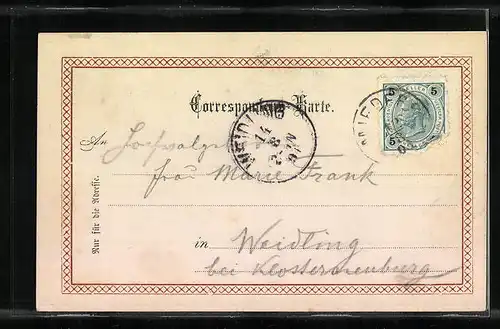 Correspondenz-Karte.
5 5
5
WEIDLING
14
8
97
An
Frau Marie Frank
Nur für die Adresse.
in Weidling
bei Klosterneuburg